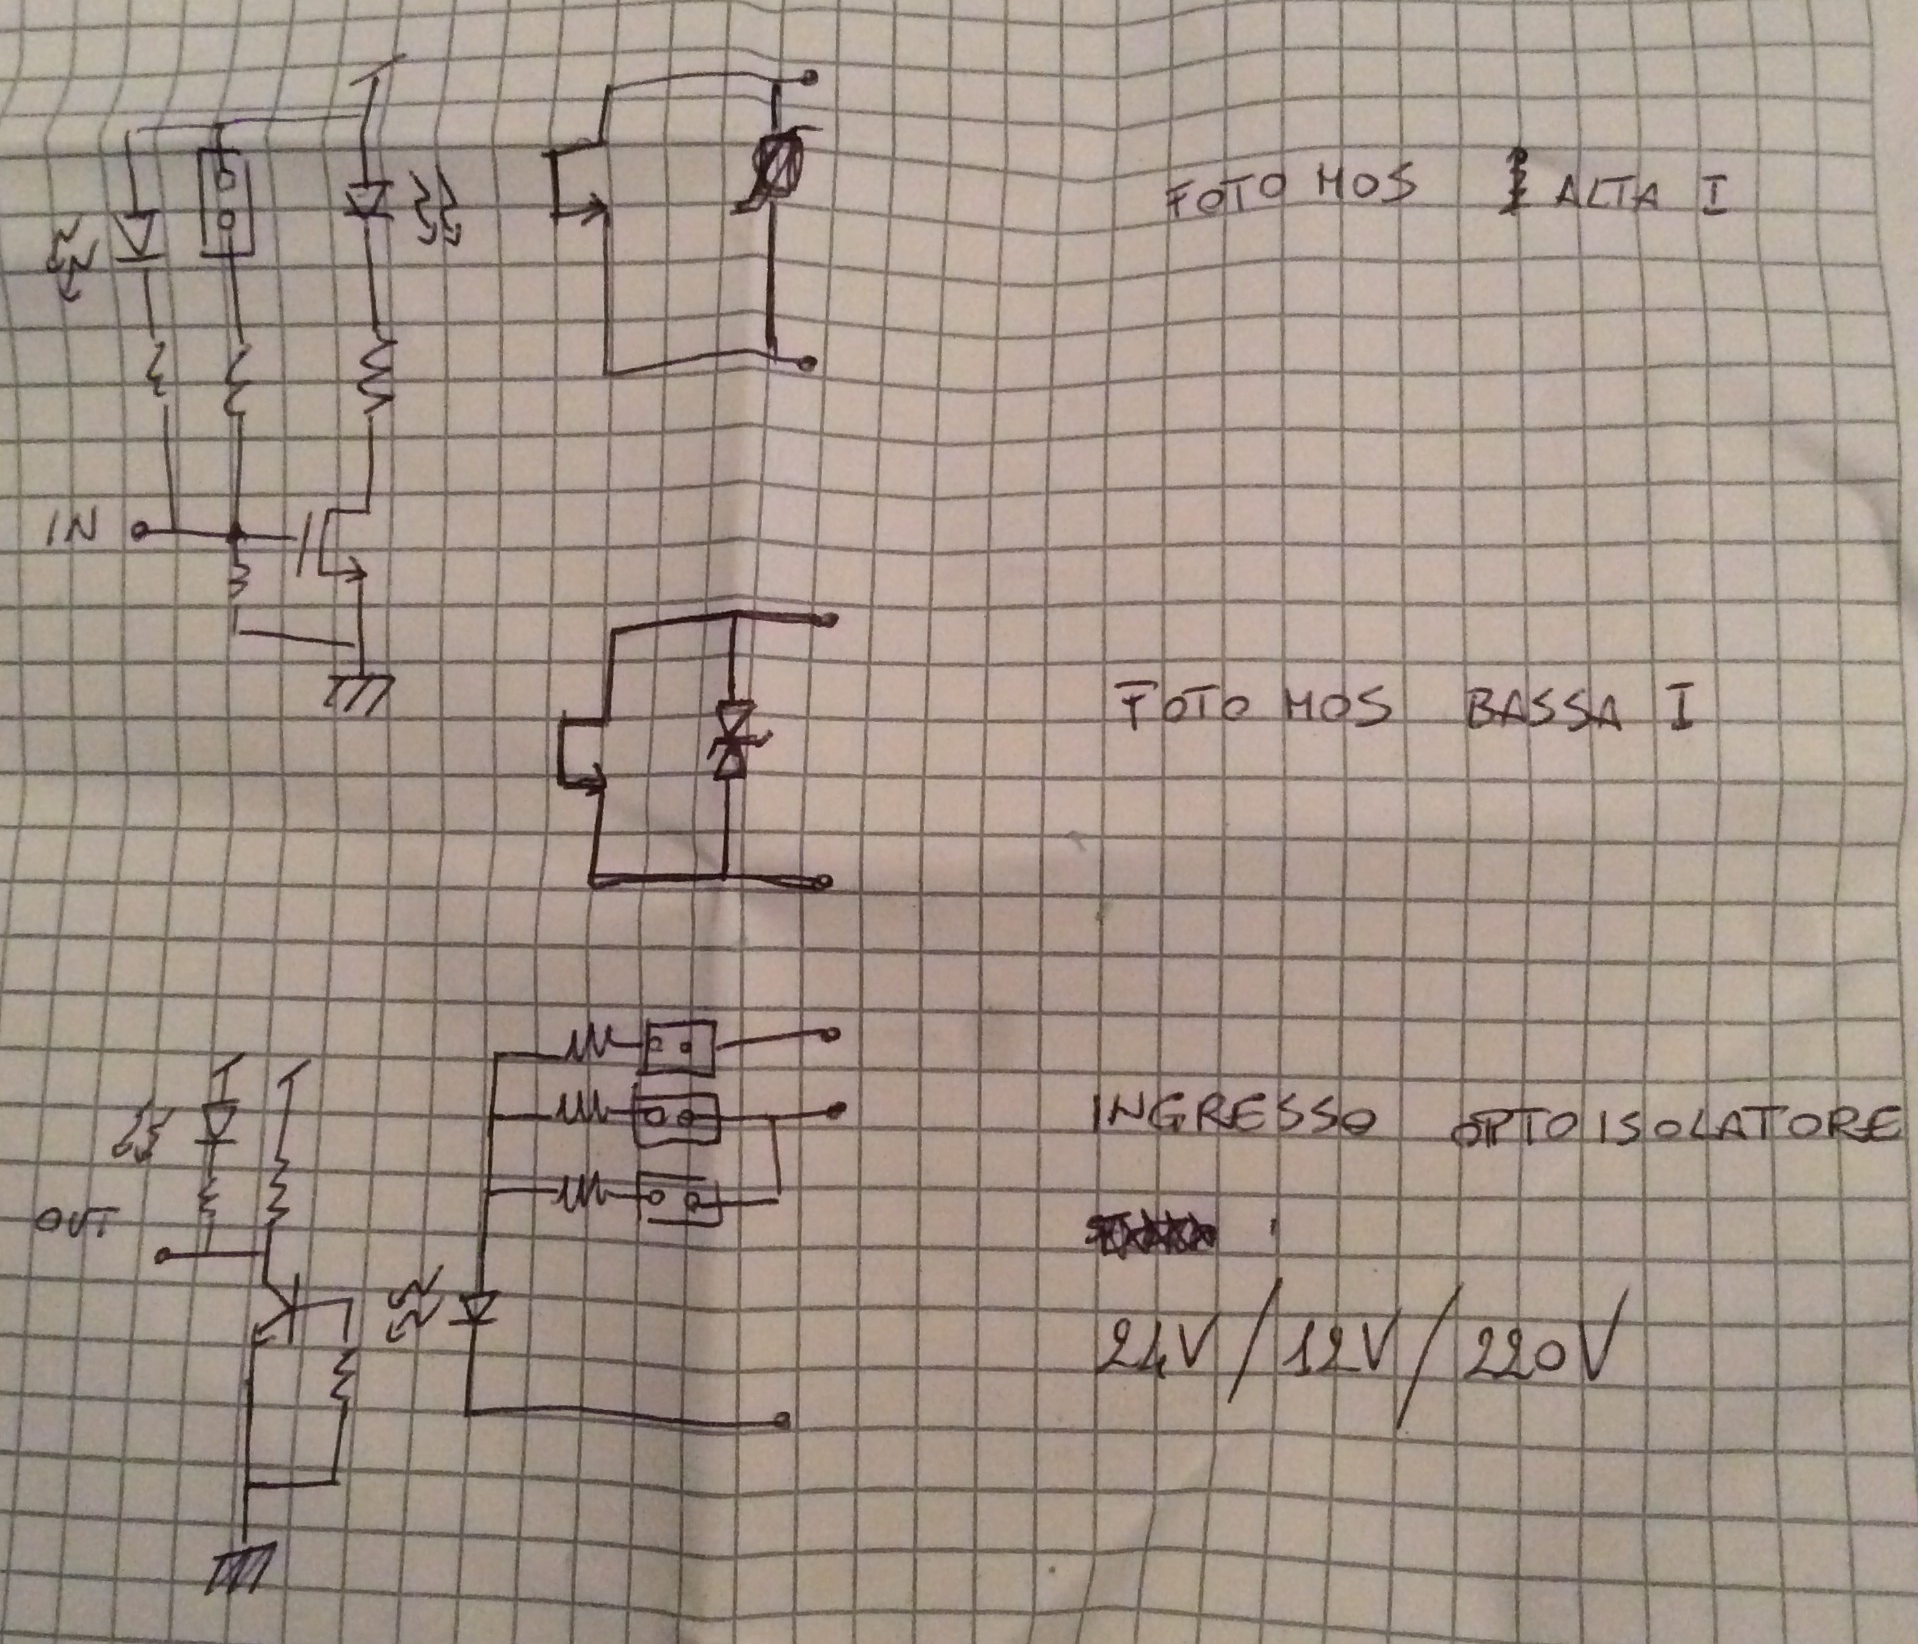 FOTO MOS ALTA I
IN
FOTO MOS BASSA I
INGRESSO OPTOISOLATORE
OUT
24V / 12V / 220V